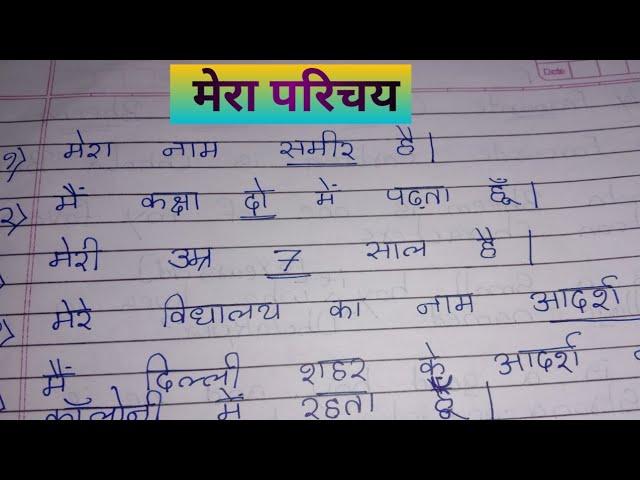 मेरा परिचय
Date
१) मेरा नाम समीर है।
२) मैं कक्षा दो में पढ़ता हूँ।
मेरी उम्र 7 साल है।
मेरे विधालय का नाम आदर्श
मैं दिल्ली शहर के आदर्श
कॉलोनी में रहता हूँ।